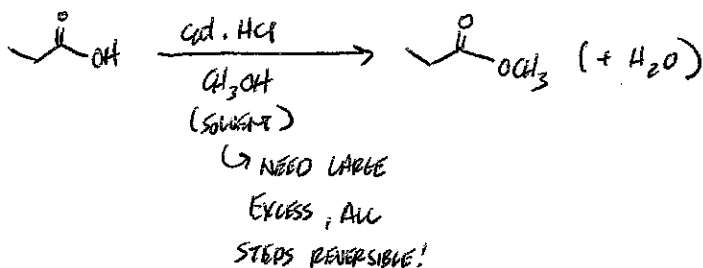 cat. HCl
O
OH
CH₃OH
(SOLVENT)
↳ NEED LARGE
EXCESS, ALL
STEPS REVERSIBLE!
O
OCH₃ (+ H₂O)